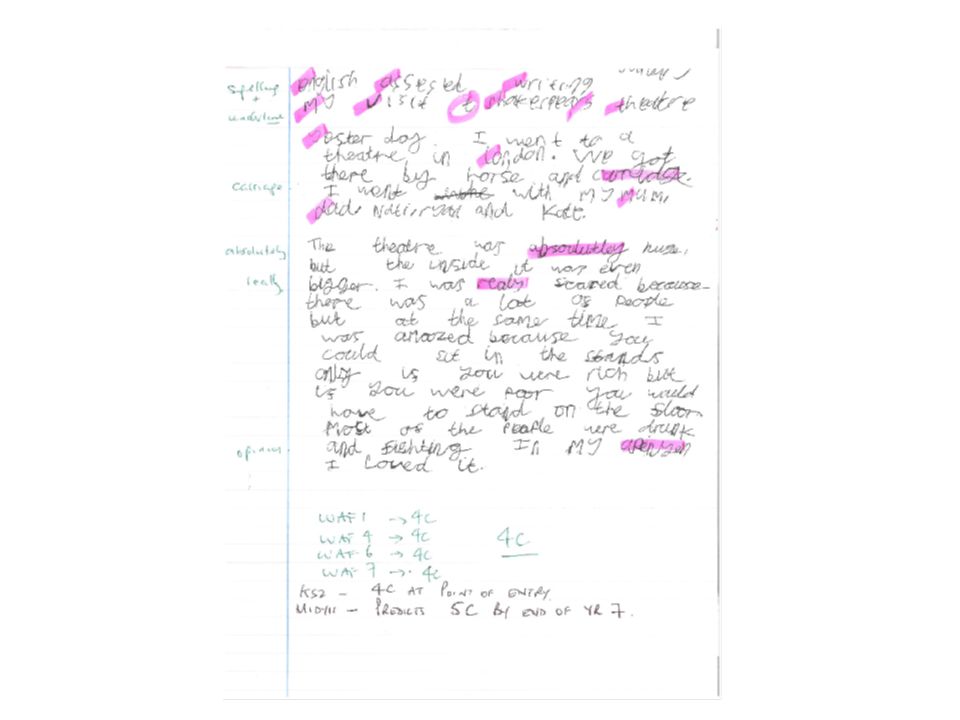 spelling + underline
english assesed writing
MY visit t shakespears theatre
yesterday I went to a
theatre in london. We got
there by horse and
carriage
I went with MY MUM,
dad. and Kait.
absolutely
The theatre was absolutley huge,
but the inside it was even
really
bigger. I was realy scared because
there was a lot of people
but at the same time I
was amazed because you
could sit in the stands
only if you were rich but
if you were poor you would
have to stand on the floor
Most of the people were drunk
opinion
and fighting In MY
I loved it.
WAF 1 -> 4c
WAF 4 -> 4c
4c
WAF 6 -> 4c
WAF 7 -> 4c
KS2 - 4C AT POINT OF ENTRY.
MIDYIS - PREDICTS 5C BY END OF YR 7.